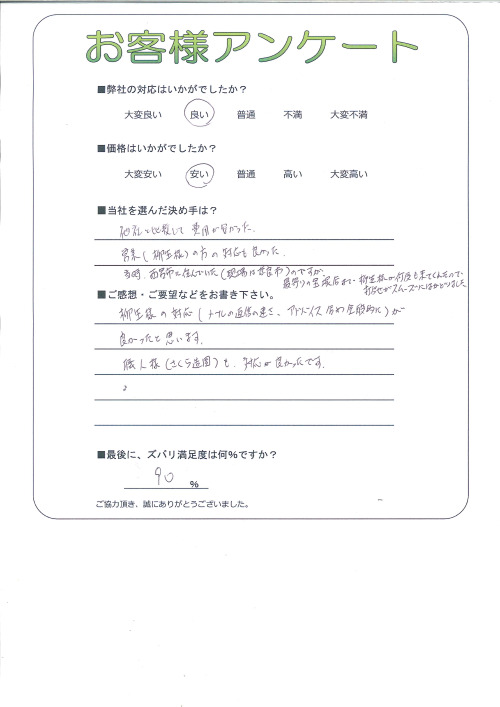 お客様アンケート
■弊社の対応はいかがでしたか？
大変良い 良い 普通 不満 大変不満
■価格はいかがでしたか？
大変安い 安い 普通 高い 大変高い
■当社を選んだ決め手は？
他社と比較して費用が良かった。
営業(柳生様)の方の対応も良かった。
当時、西宮市に住んでいた(現場は
のですが、
最寄りの
柳生様が何度も来てくれたので、
打合せがスムーズに
■ご感想・ご要望などをお書き下さい。
柳生様の対応(メールの返信の速さ、アドバイス含め全般的に)が
良かったと思います。
職人様(さくら造園)も、対応が良かったです。
■最後に、ズバリ満足度は何％ですか？
90 %
ご協力頂き、誠にありがとうございました。